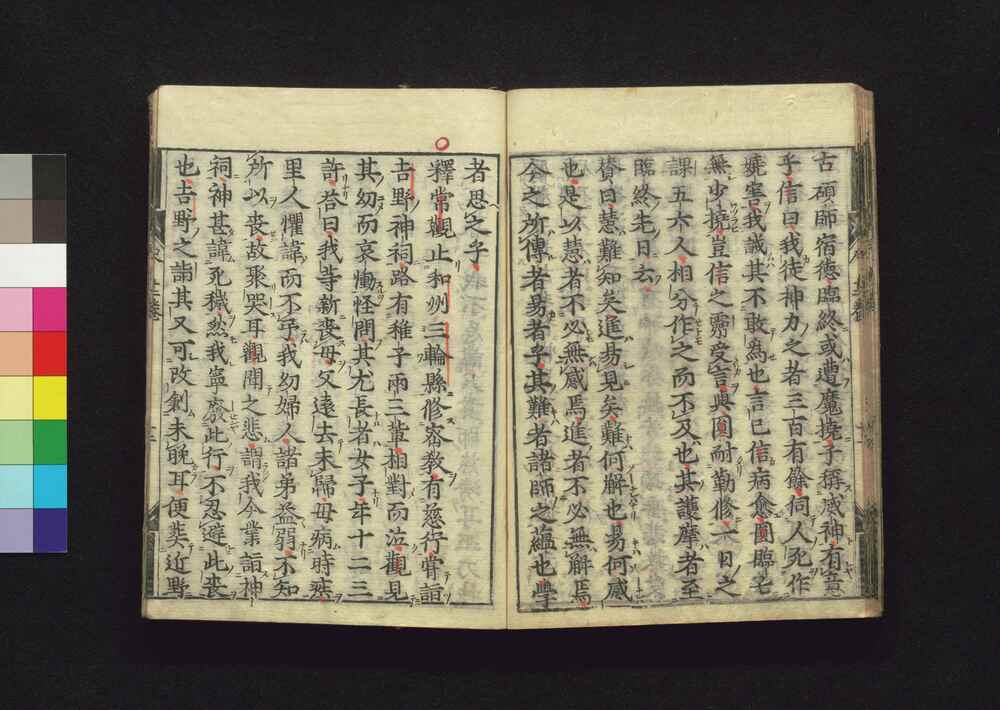 古碩師宿德臨終或遭魔撓子稱感神有意
乎信曰我徒神力之者三百有餘伺人死作
嬈害我誡其不敢為也言已信病愈圓臨亡
無少撓豈信之靈受言與圓耐勤修六日之
課五六人相分作之而不及也其護摩者至
臨終先日云
贊曰慧難知矣進易見矣難何解也易何感
也是以慧者不必無感焉進者不必無解焉
今之所傳者易者乎其難者諸師之蘊也學
者思之乎
釋常觀止和州三輪縣修密教有慈行甞詣
吉野神祠路有稚子兩三輩相對而泣觀見
其幼而哀慟恠問其尤長者女子年十二三
許荅曰我等新喪母父遠去未歸母病時疾
里人懼諱而不予我幼婦人諸弟益弱不知
所以喪故聚哭耳觀聞之悲謂我今業詣神
祠神甚諱死穢然我寧廢此行不忍避此喪
也吉野之詣其又可改剏未晚耳便葬近野